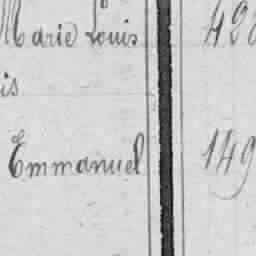 Marie Louis 428
is
Emmanuel 149